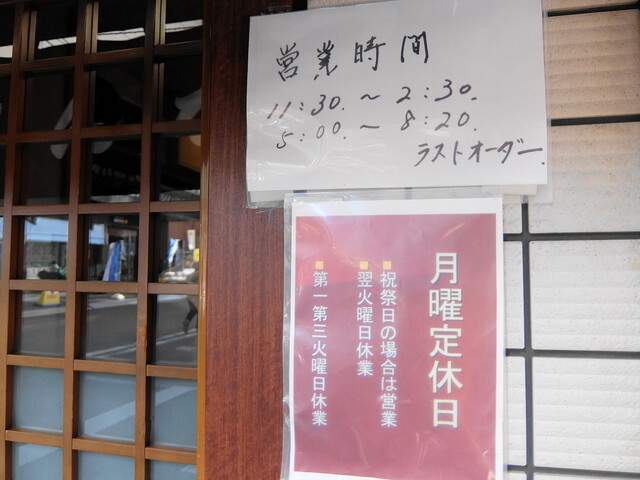 営業時間
11:30.～2:30.
5:00.～8:20.
ラストオーダー.
月曜定休日
■祝祭日の場合は営業
■翌火曜日休業
■第一第三火曜日休業